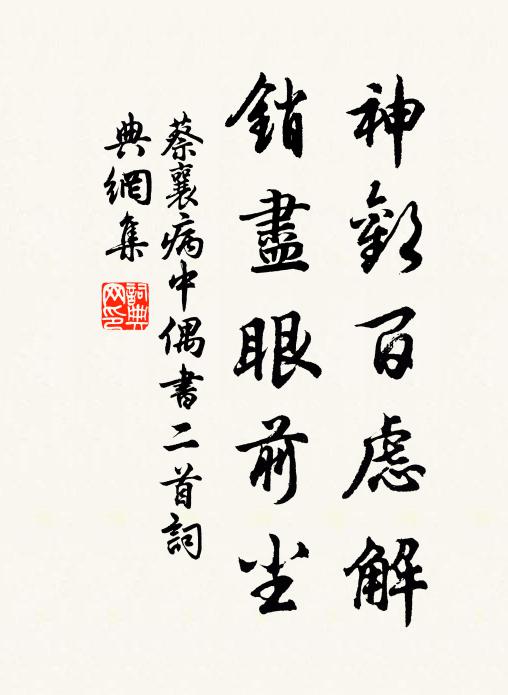 神歡百慮解
銷盡眼前尘
蔡襄病中偶書二首詞
典網集
詞典
网印